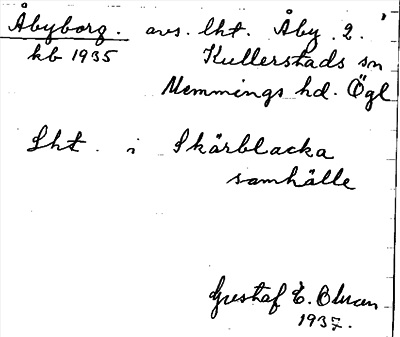 Åbyborg. avs. lht. Åby 2.
kb 1935 Kullerstads sn
Memmings hd. Ögl
Lht. i Skärblacka
samhälle
Gustaf E. Olman
1937.